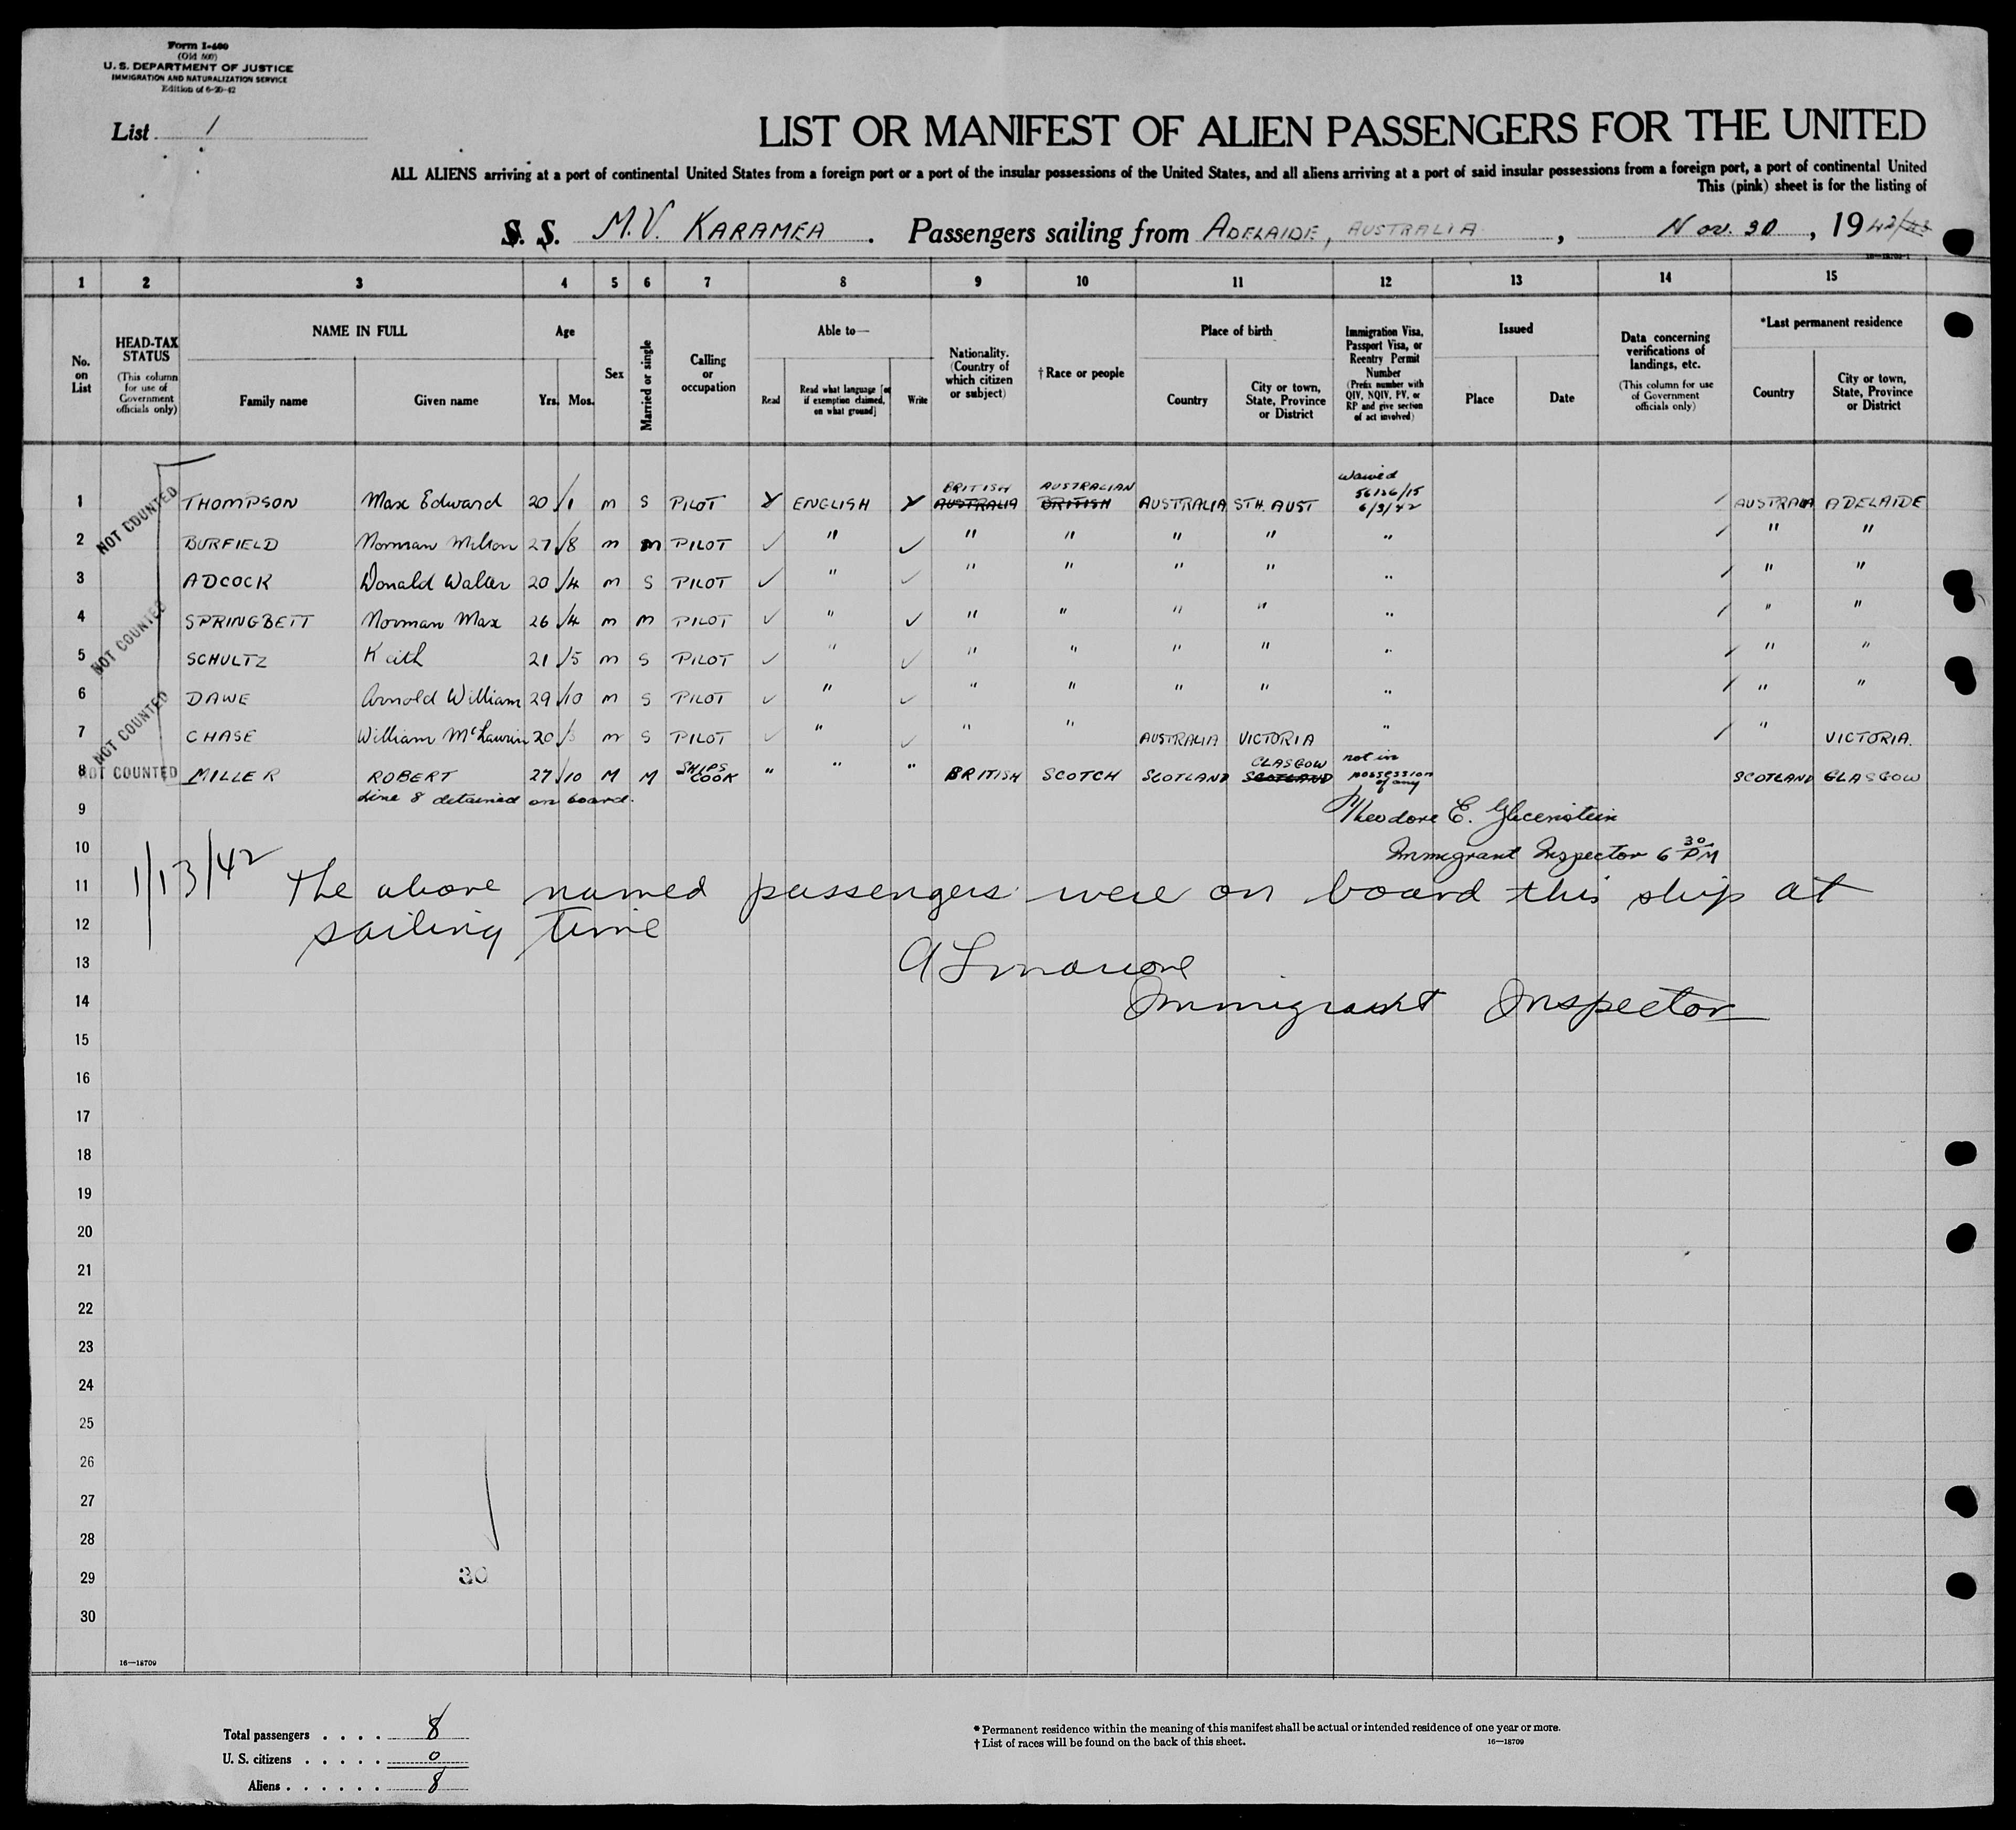 Form I-600
(Old 500)
U. S. DEPARTMENT OF JUSTICE
IMMIGRATION AND NATURALIZATION SERVICE
Edition of 6-20-42
List 1
LIST OR MANIFEST OF ALIEN PASSENGERS FOR THE UNITED
ALL ALIENS arriving at a port of continental United States from a foreign port or a port of the insular possessions of the United States, and all aliens arriving at a port of said insular possessions from a foreign port, a port of continental United
This (pink) sheet is for the listing of
S. S. M.V. KARAMEA. Passengers sailing from ADELAIDE, AUSTRALIA, Nov. 30, 1942/43
16—18709-1
1 2 3 4 5 6 7 8 9 10 11 12 13 14 15
No. on List
HEAD-TAX STATUS
(This column for use of Government officials only)
NAME IN FULL
Family name Given name
Age
Yrs. Mos.
Sex
Married or single
Calling or occupation
Able to—
Read Read what language [or if exemption claimed, on what ground] Write
Nationality. (Country of which citizen or subject)
† Race or people
Place of birth
Country City or town, State, Province or District
Immigration Visa, Passport Visa, or Reentry Permit Number
(Prefix number with QIV, NQIV, PV, or RP and give section of act involved)
Issued
Place Date
Data concerning verifications of landings, etc.
(This column for use of Government officials only)
*Last permanent residence
Country City or town, State, Province or District
BRITISH AUSTRALIAN Waived
1 NOT COUNTED THOMPSON Max Edward 20 /1 m S PILOT Y ENGLISH Y AUSTRALIA BRITISH AUSTRALIA STH. AUST 56126/15 6/3/42 / AUSTRALIA ADELAIDE
2 BURFIELD Norman Milton 27 /8 m m PILOT ✓ " ✓ " " " " " / " "
3 ADCOCK Donald Walter 20 /4 m S PILOT ✓ " ✓ " " " " " / " "
4 NOT COUNTED SPRINGBETT Norman Max 26 /4 m m PILOT ✓ " ✓ " " " " " / " "
5 SCHULTZ Keith 21 /5 m S PILOT ✓ " ✓ " " " " " / " "
6 DAWE Arnold William 29 /10 m S PILOT ✓ " ✓ " " " " " / " "
7 NOT COUNTED CHASE William McLaurin 20 / m S PILOT ✓ " ✓ " " AUSTRALIA VICTORIA " / " VICTORIA.
8 NOT COUNTED MILLER ROBERT 27 /10 M M SHIPS COOK " " " BRITISH SCOTCH SCOTLAND GLASGOW SCOTLAND not in possession of any SCOTLAND GLASGOW
Line 8 detained on board.
9 Theodore E.
10 Immigrant Inspector 6 30 PM
11 1/13/42 The above named passengers were on board this ship at
12 sailing time
13
14 Immigrant Inspector
15
16
17
18
19
20
21
22
23
24
25
26
27
28
29 30
30
16—18709
Total passengers . . . . 8
U. S. citizens . . . . . 0
Aliens . . . . . . 8
* Permanent residence within the meaning of this manifest shall be actual or intended residence of one year or more.
† List of races will be found on the back of this sheet. 16—18709